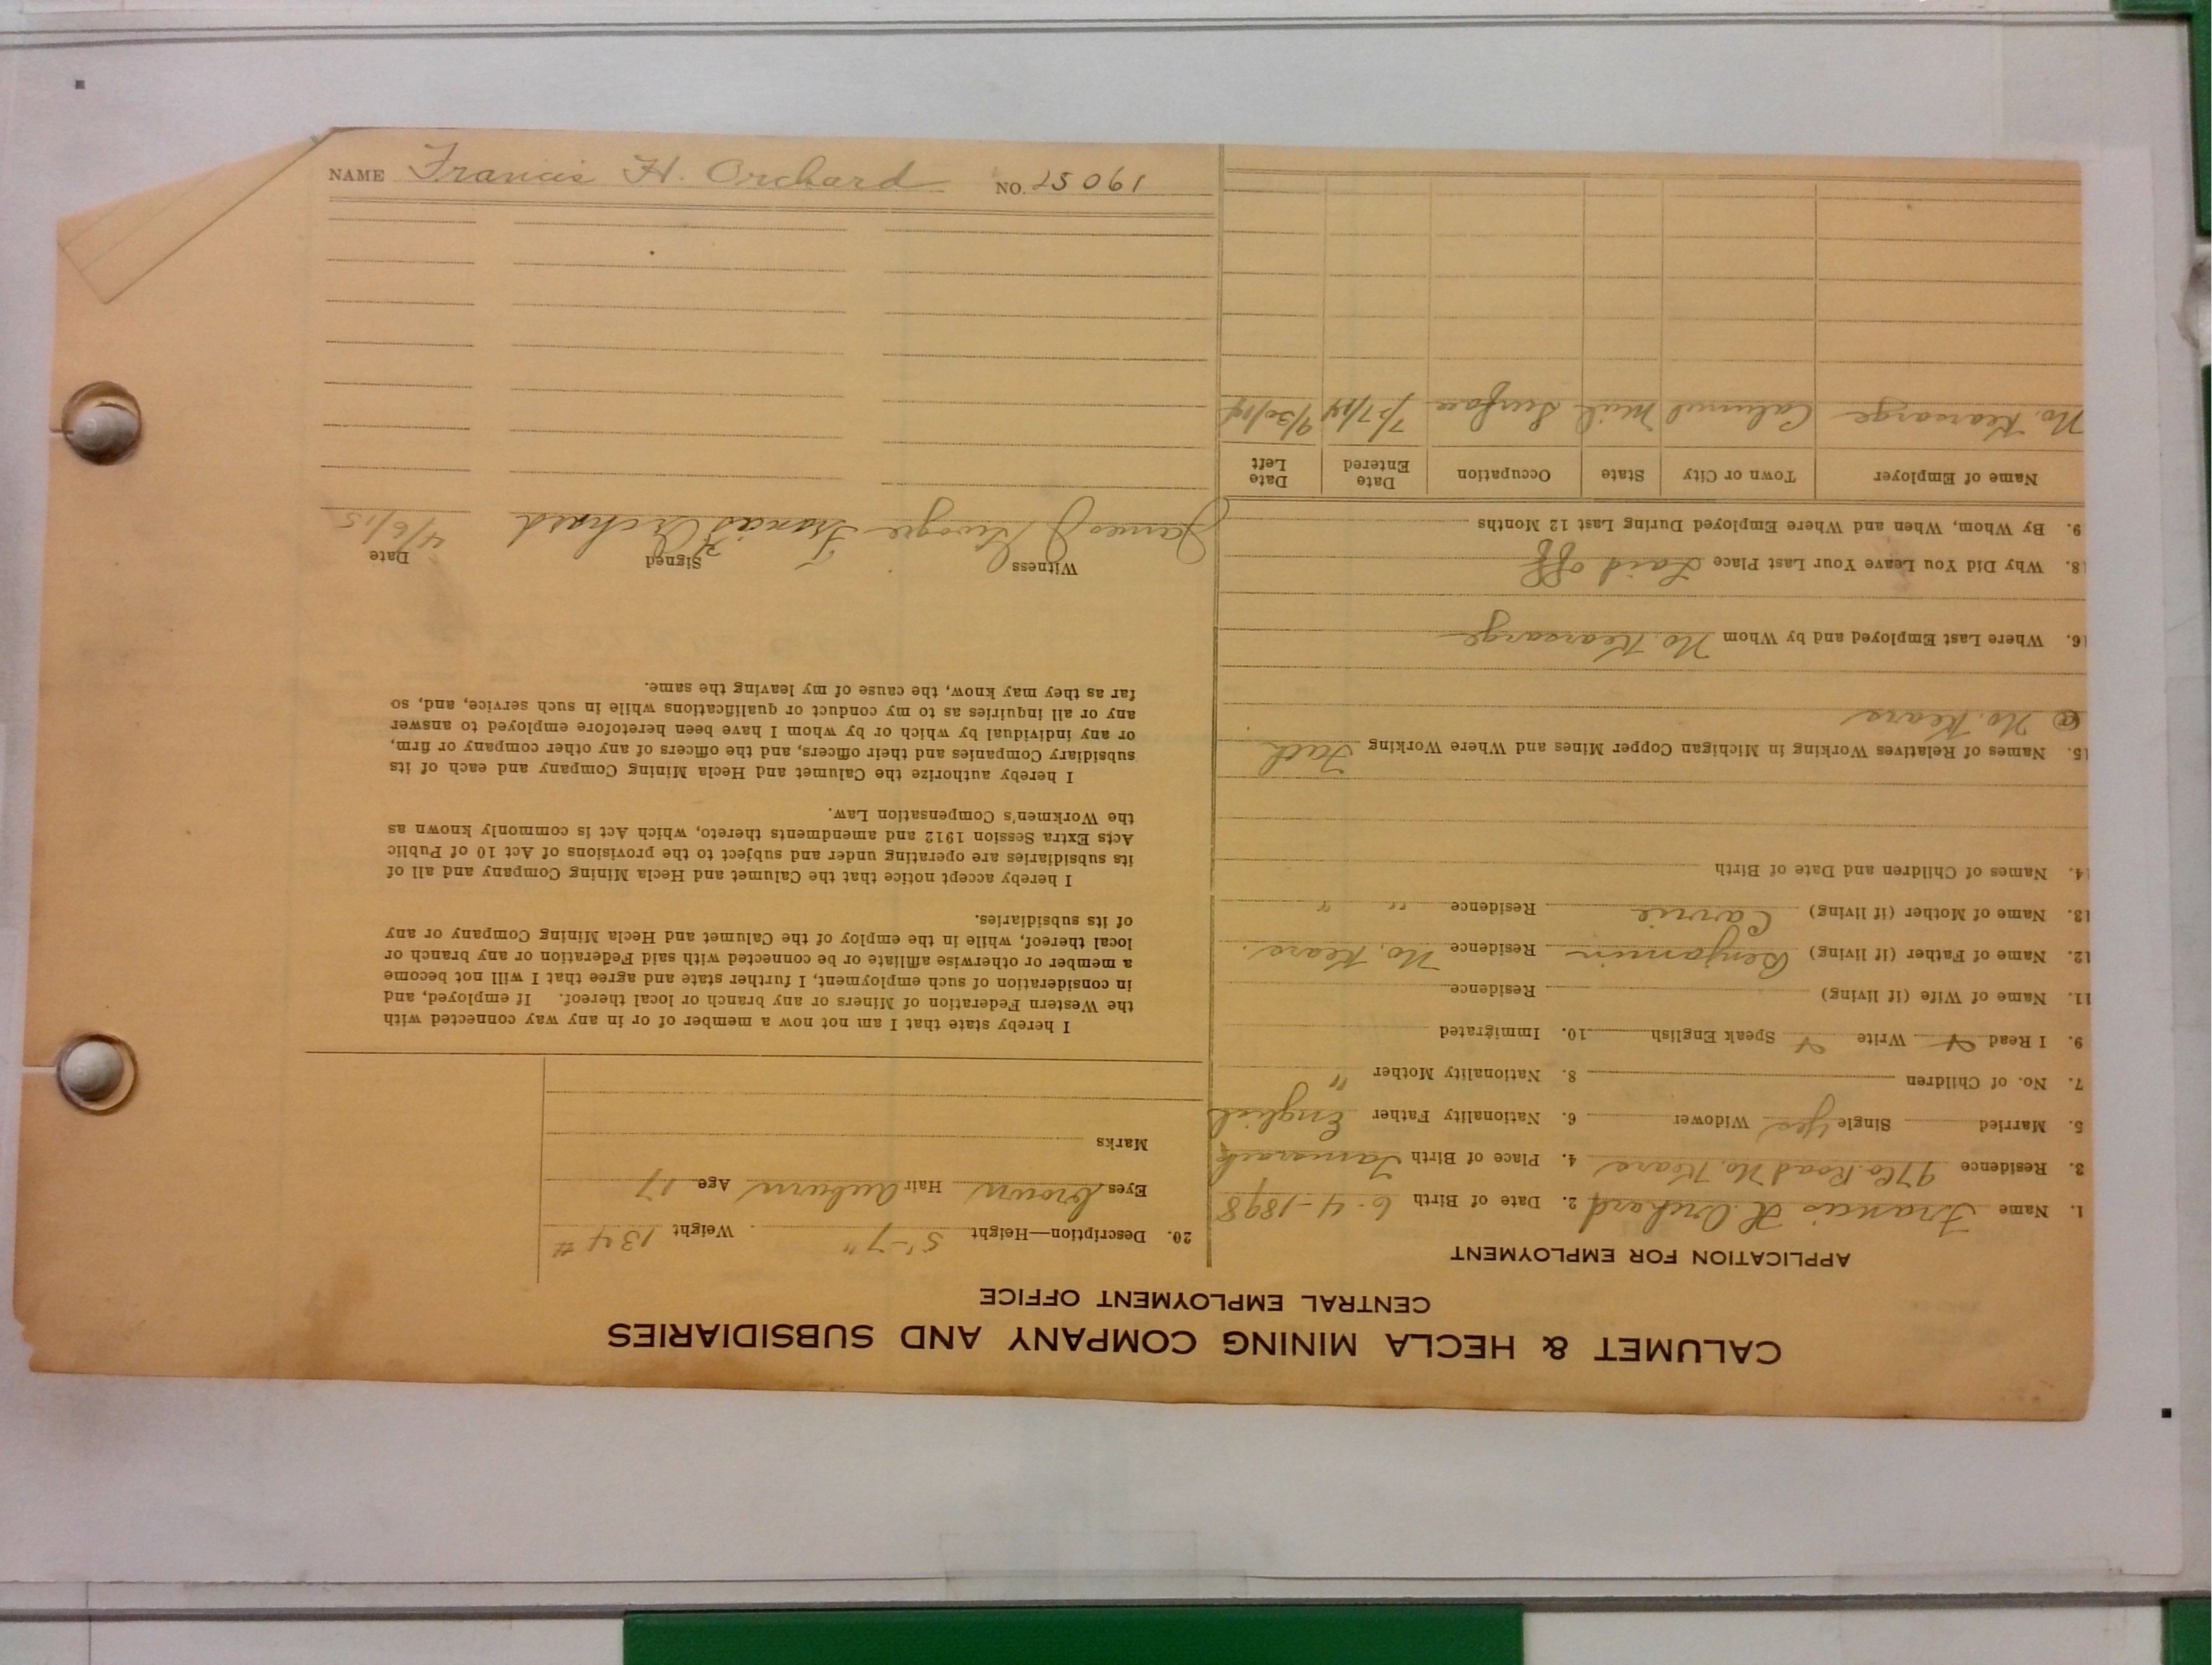 CALUMET & HECLA MINING COMPANY AND SUBSIDIARIES
CENTRAL EMPLOYMENT OFFICE
APPLICATION FOR EMPLOYMENT
1. Name Francis H. Orchard 2. Date of Birth 6-4-1898
3. Residence Co. Road No. Kears 4. Place of Birth Tamarack
5. Married Single Yes Widower 6. Nationality Father English
7. No. of Children 8. Nationality Mother "
9. I Read Write Speak English 10. Immigrated
11. Name of Wife (if living) Residence
12. Name of Father (if living) Benjamin Residence No. Kears.
13. Name of Mother (if living) Carrie Residence " "
14. Names of Children and Date of Birth
15. Names of Relatives Working in Michigan Copper Mines and Where Working
@ No. Kears
16. Where Last Employed and by Whom No. Kearsarge
18. Why Did You Leave Your Last Place Laid off
9. By Whom, When and Where Employed During Last 12 Months
Name of Employer Town or City State Occupation Date Entered Date Left
No. Kearsarge Calumet Mich Surface 9/30/14
20. Description—Height 5'-7" Weight 134 #
Eyes brown Hair Auburn Age 17
Marks
I hereby state that I am not now a member of or in any way connected with
the Western Federation of Miners or any branch or local thereof. If employed, and
in consideration of such employment, I further state and agree that I will not become
a member or otherwise affiliate or be connected with said Federation or any branch or
local thereof, while in the employ of the Calumet and Hecla Mining Company or any
of its subsidiaries.
I hereby accept notice that the Calumet and Hecla Mining Company and all of
its subsidiaries are operating under and subject to the provisions of Act 10 of Public
Acts Extra Session 1912 and amendments thereto, which Act is commonly known as
the Workmen's Compensation Law.
I hereby authorize the Calumet and Hecla Mining Company and each of its
subsidiary Companies and their officers, and the officers of any other company or firm,
or any individual by which or by whom I have been heretofore employed to answer
any or all inquiries as to my conduct or qualifications while in such service, and, so
far as they may know, the cause of my leaving the same.
Witness Signed Date
James J. Francis H Orchard 4/6/15
NAME Francis H. Orchard NO. 25061